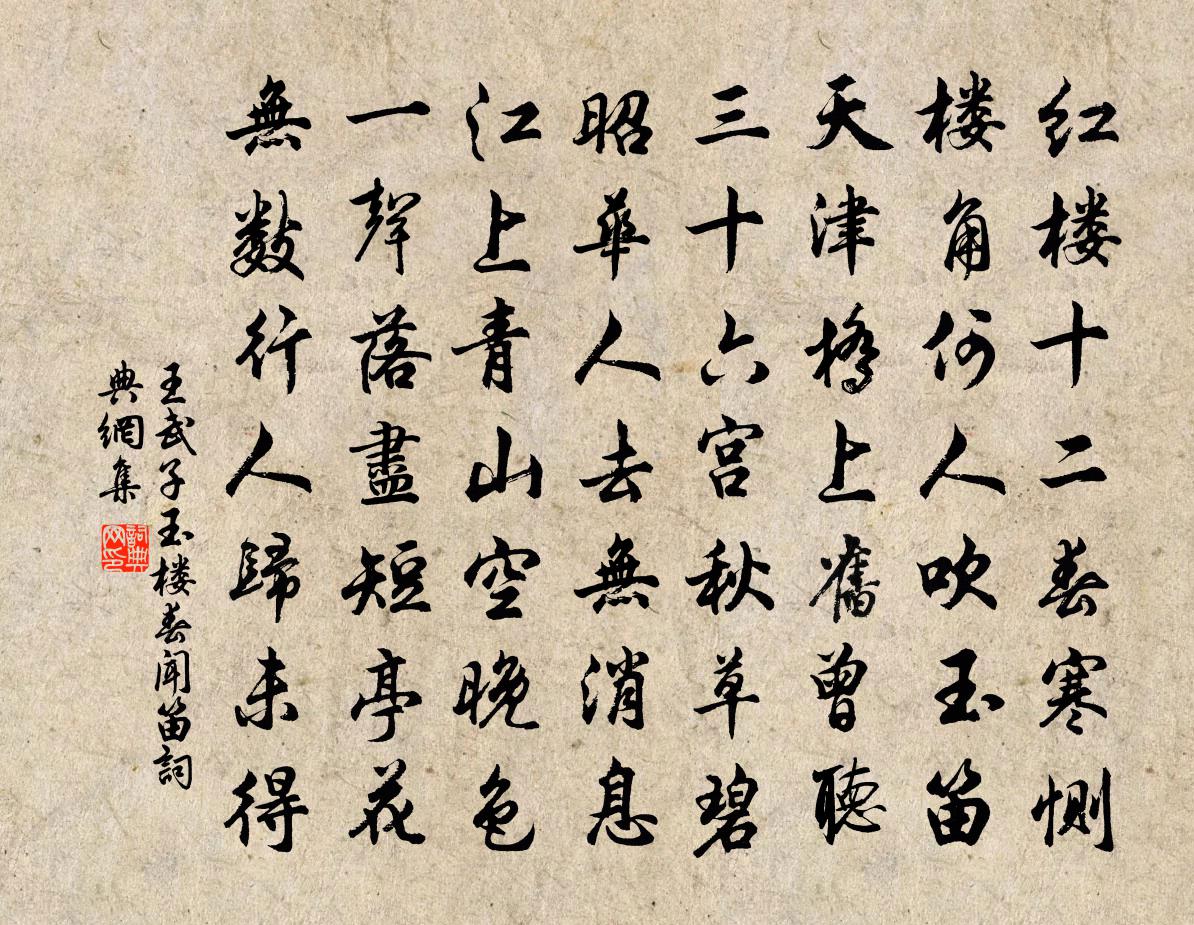 红楼十二春寒恻
楼角何人吹玉笛
天津桥上舊曾聽
三十六宫秋草碧
昭華人去無消息
江上青山空晚色
一聲落盡短亭花
無数行人歸未得
王武子玉楼春闻笛詞
典網集
詞典网印